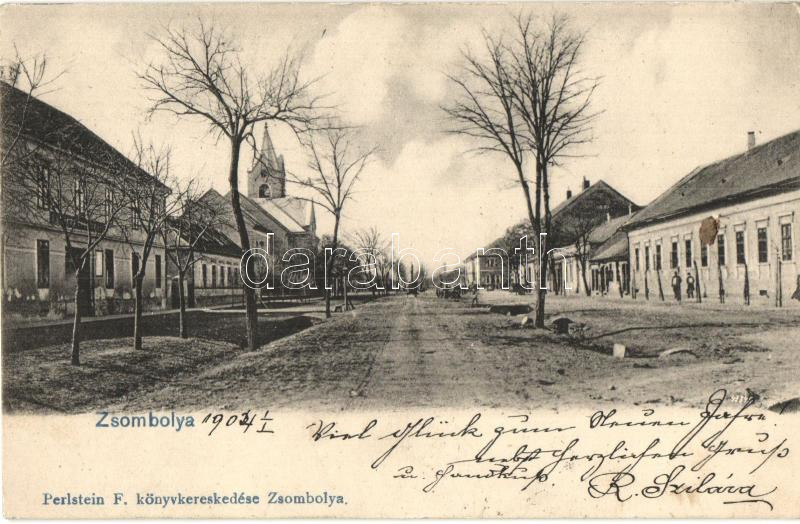 darabanth
Zsombolya 1904 1/I
Viel Glück zum Neuen Jahre!
nebst herzlichen Gruß
u. Handkuß.
R. Szilára
Perlstein F. könyvkereskedése Zsombolya.